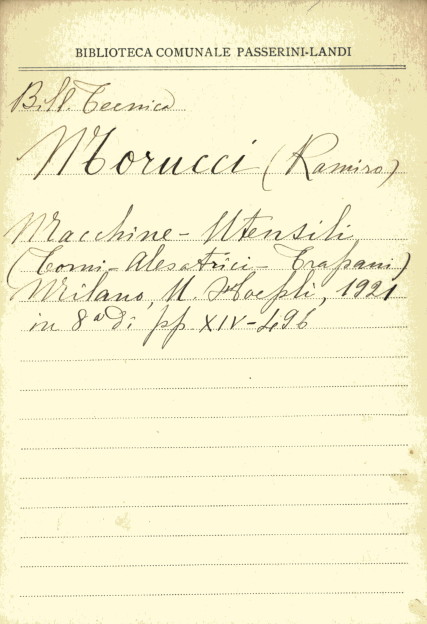 BIBLIOTECA COMUNALE PASSERINI-LANDI
Bibl. Tecnica
Morucci (Ramiro)
Macchine - Utensili
(Torni - Alesatrici - Trapani)
Milano, U. Hoepli, 1921
in 8° di pp XIV-496